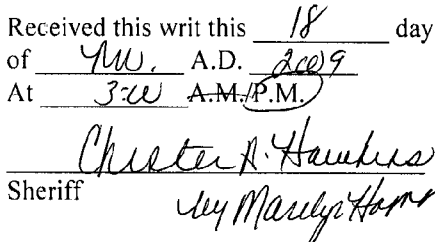 Received this writ this 18 day
of A.D. 2009
At 3:00 A.M./P.M.
Chester A. Hawkins
Sheriff by Marilyn